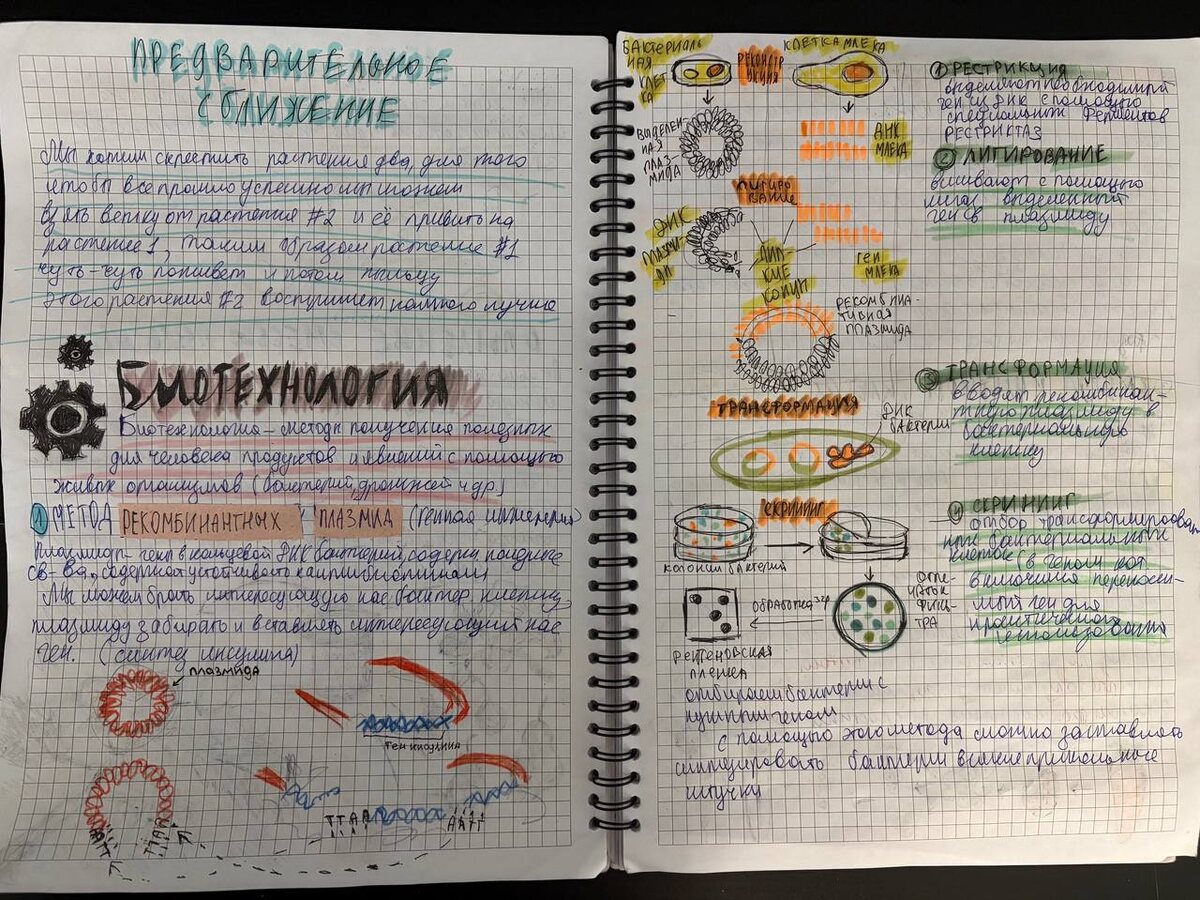 ПРЕДВАРИТЕЛЬНОЕ
СБЛИЖЕНИЕ
Мы хотим скрестить растения два, для того
чтобы все прошло успешно мы можем
взять ветку от растения #2 и её привить на
растение 1, таким образом растение #1
чуть-чуть поживет и потом пыльцу
этого растения #2 воспримет намного лучше
БИОТЕХНОЛОГИЯ
Биотехнология – методы получения полезных
для человека продуктов и явлений с помощью
живых организмов (бактерий, дрожжей и др)
1 МЕТОД РЕКОМБИНАНТНЫХ ПЛАЗМИД (Генная инженерия
Плазмиды – гены в кольцевой ДНК бактерий, содерж полезные
св-ва, содержат устойчивость к антибиотикам)
Мы можем брать интересующую нас бактер. клетку,
плазмиду забирать и вставлять интересующий нас
ген. (синтез инсулина)
ПЛАЗМИДА
ген инсулина
ТТАА
ААТТ
ТТАА
БАКТЕРИАЛЬ
НАЯ
КЛЕТ
КА
РЕКОНСТР
УКЦИЯ
КЛЕТКА МЛЕКА
ВЫДЕЛЕН
НАЯ
ПЛАЗ
МИДА
ДНК
МЛЕКА
ЛИГИРО
ВАНИЕ
ДНК
ПЛАЗМИ-
ДЫ
ЛИП-
КИЕ
КОНЦЫ
ГЕН
МЛЕКА
РЕКОМБИНА-
ТИВНАЯ
ПЛАЗМИДА
ТРАНСФОРМАЦИЯ
ДНК
БАКТЕРИИ
СКРИНИНГ
КОЛОНИИ БАКТЕРИЙ
ОТПЕ-
ЧАТЫК
ФИЛЬ-
ТРА
ОБРАБОТКА
РЕНТГЕНОВСКАЯ
ПЛЕНКА
отбираем бактерии с
нужным геном
С помощью этого метода можно заставлять
синтезировать бактерии всякие прикольные
штучки
1 РЕСТРИКЦИЯ
выделяют необходимый
ген из ДНК с помощью
специальных ферментов
РЕСТРИКТАЗ
2 ЛИГИРОВАНИЕ
вшивают с помощью
лигаз выделенный
ген в плазмиду
3 ТРАНСФОРМАЦИЯ
вводят рекомбинан-
тную плазмиду в
бактериальную
клетку
4 СКРИНИНГ
отбор трансформирован
ных бактериальных
клеток (в геном кот
включили переноси-
мый ген для
практического
использования